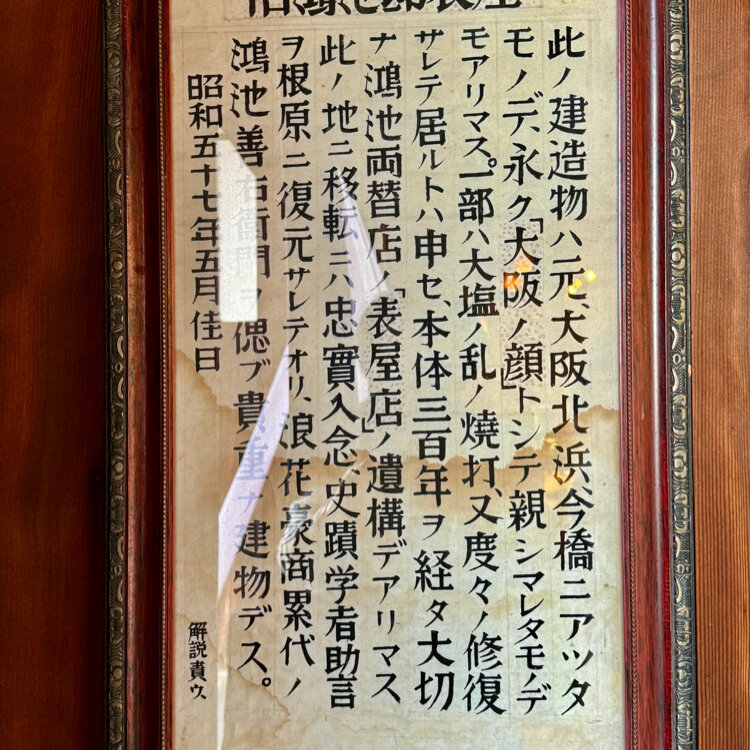 此ノ建造物ハ元、大阪北浜、今橋ニアツタ
モノデ、永ク「大阪ノ顔」トシテ親シマレタモノデ
モアリマス。一部ハ大塩ノ乱ノ焼打、又度々ノ修復
サレテ居ルトハ申セ、本体三百年ヲ経タ大切
ナ鴻池両替店ノ「表屋店」ノ遺構デアリマス
此ノ地ニ移転ニハ忠實入念、史蹟学者助言
ヲ根原ニ復元サレテオリ、浪花豪商累代ノ
鴻池善右衛門ヲ偲ブ貴重ナ建物デス。
昭和五十七年五月佳日
解説責